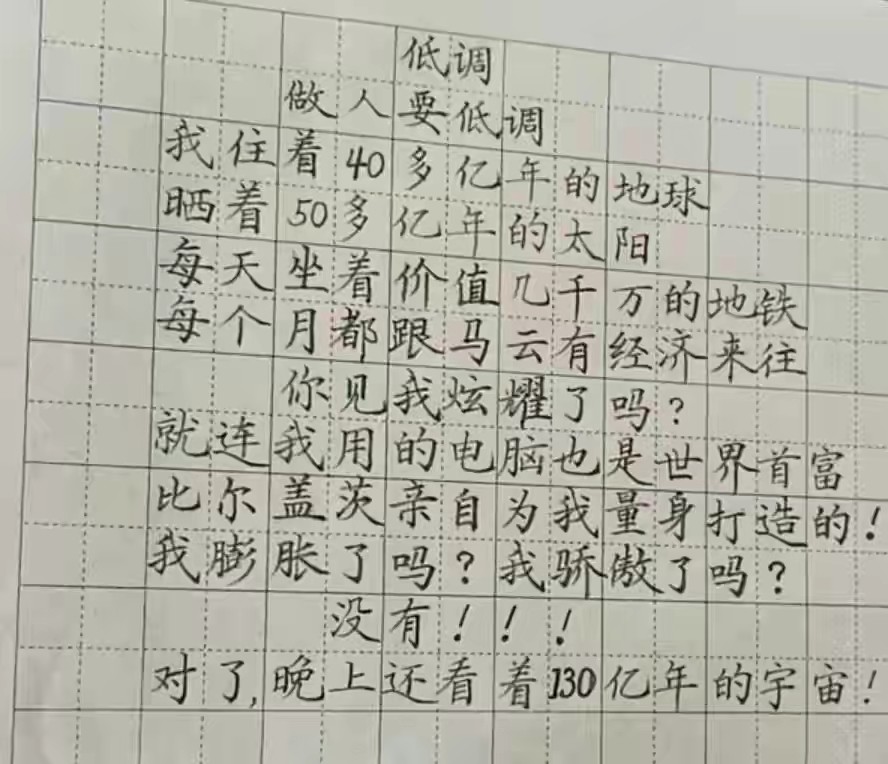 低调
做人要低调
我住着40多亿年的地球
晒着50多亿年的太阳
每天坐着价值几千万的地铁
每个月都跟马云有经济来往
你见我炫耀了吗?
就连我用的电脑也是世界首富
比尔盖茨亲自为我量身打造的!
我膨胀了吗?我骄傲了吗?
没有!!!
对了,晚上还看着130亿年的宇宙!